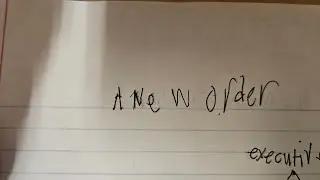 A New order
executiv